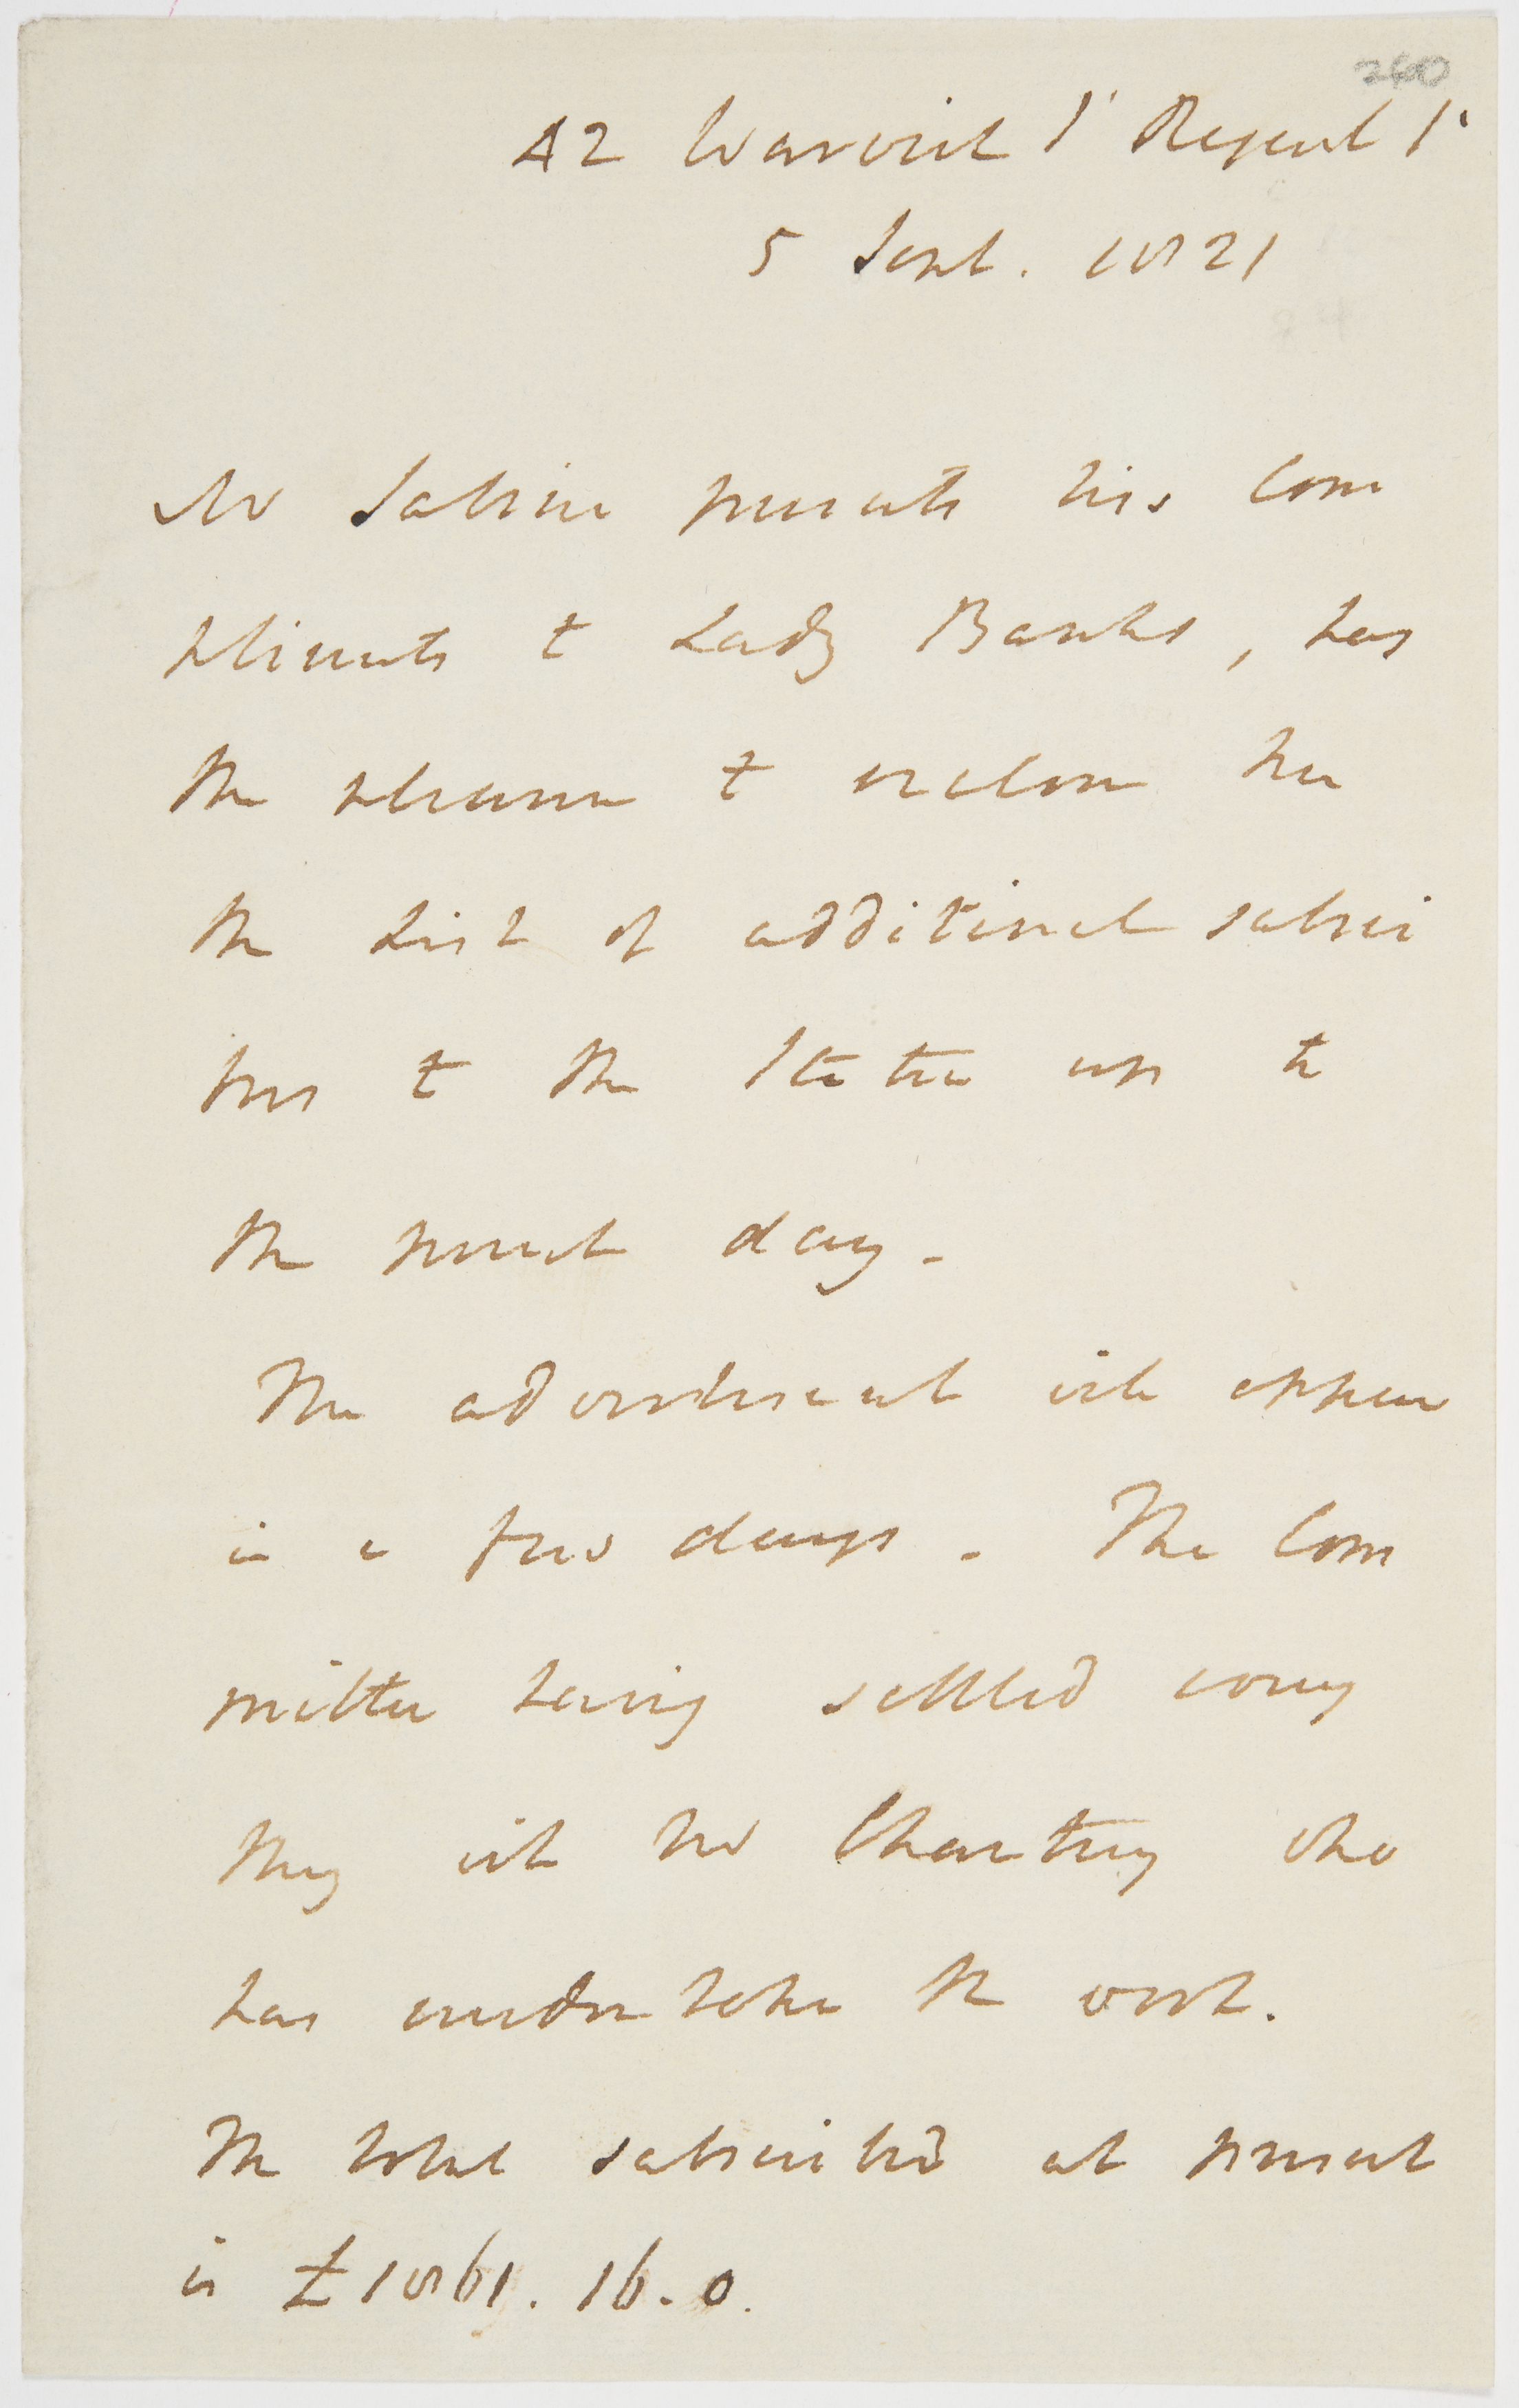 260
42 Warwick St Regent St
5 Sept. 1821
Mr Sabine presents his Com
pliments to Lady Banks, has
the pleasure to enclose her
the List of additional subscri
bers to the Statue up to
the present day.
The advertisement will appear
in a few days. The Com
mittee having settled every
thing with Mr Chantrey who
has undertaken the work.
The total subscribed at present
is £1861. 16. 0.